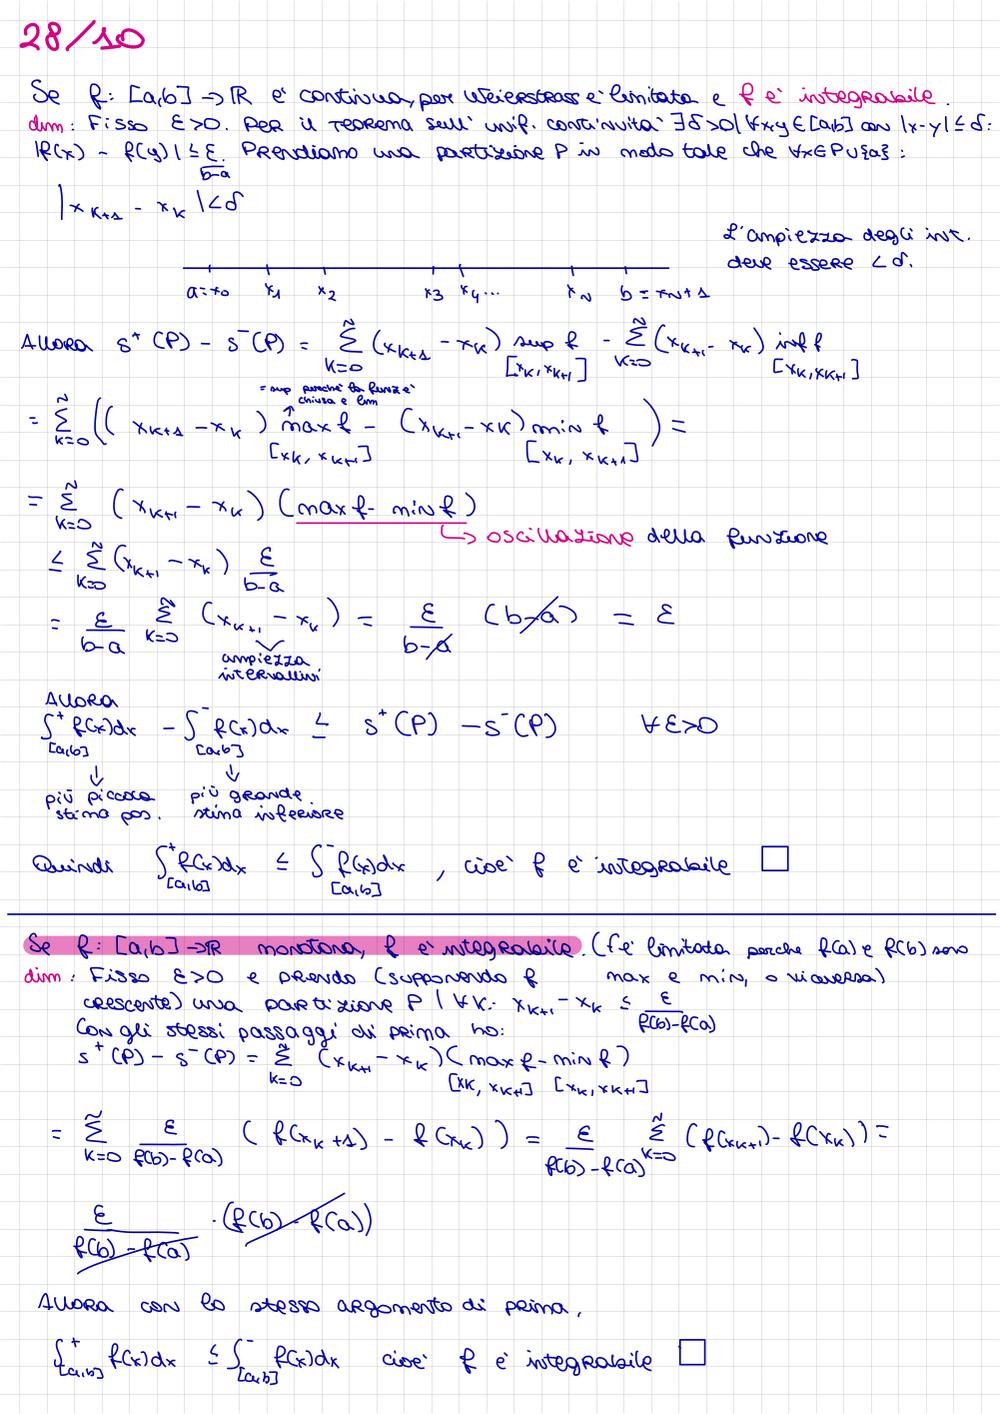 28/10
Se f: [a,b] → ℝ è continua, per Weierstrass è limitata e f è integrabile.
dim: Fisso ε>0. Per il teorema sull' unif. continuità ∃δ>0 | ∀x,y∈[a,b] con |x-y| ≤ δ:
|f(x) - f(y)| ≤ ε/(b-a). Prendiamo una partizione P in modo tale che ∀x∈P∪{a}:
|x_{K+1} - x_K| < δ
L'ampiezza degli int.
deve essere < δ.
a=x_0 x_1 x_2 x_3 x_4... x_N b = x_{N+1}
Allora S⁺(P) - S⁻(P) = Σ_{K=0}^{Ñ} (x_{K+1} - x_K) sup f_{[x_K, x_{K+1}]} - Σ_{K=0}^{Ñ} (x_{K+1} - x_K) inf f_{[x_K, x_{K+1}]}
= sup perché la funz è
chiusa e lim
= Σ_{K=0}^{Ñ} ((x_{K+1} - x_K) max f_{[x_K, x_{K+1}]} - (x_{K+1} - x_K) min f_{[x_K, x_{K+1}]}) =
= Σ_{K=0}^{Ñ} (x_{K+1} - x_K) (max f - min f)
↳ oscillazione della funzione
≤ Σ_{K=0}^{Ñ} (x_{K+1} - x_K) ε/(b-a)
= ε/(b-a) Σ_{K=0}^{Ñ} (x_{K+1} - x_K) = ε/(b-a) (b-a) = ε
ampiezza
intervallini
Allora
∫⁺_{[a,b]} f(x)dx - ∫⁻_{[a,b]} f(x)dx ≤ S⁺(P) - S⁻(P) ∀ε>0
↓ ↓
più piccola più grande
stima pos. stima inferiore
Quindi ∫⁺_{[a,b]} f(x)dx ≤ ∫⁻_{[a,b]} f(x)dx, cioè f è integrabile □
Se f: [a,b] → ℝ monotona, f è integrabile. (f è limitata perche f(a) e f(b) sono
max e min, o viceversa)
dim: Fisso ε>0 e prendo (supponendo f
crescente) una partizione P | ∀K: x_{K+1} - x_K ≤ ε/(f(b)-f(a))
Con gli stessi passaggi di prima ho:
S⁺(P) - S⁻(P) = Σ_{K=0}^{Ñ} (x_{K+1} - x_K)(max f_{[x_K, x_{K+1}]} - min f_{[x_K, x_{K+1}]})
= Σ_{K=0}^{Ñ} ε/(f(b)-f(a)) (f(x_K+1) - f(x_K)) = ε/(f(b)-f(a)) Σ_{K=0}^{Ñ} (f(x_{K+1}) - f(x_K)) =
ε/(f(b)-f(a)) · (f(b) - f(a))
Allora con lo stesso argomento di prima,
∫⁺_{[a,b]} f(x)dx ≤ ∫⁻_{[a,b]} f(x)dx cioè f è integrabile □